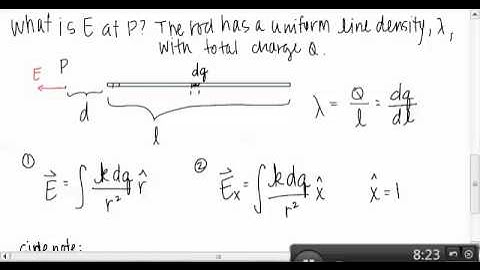 What is E at P? The rod has a uniform line density, λ,
with total charge Q.
E P dq
d
l
λ = Q/l = dq/dl
① E⃗ = ∫ k dq/r² r̂
② E⃗x = ∫ k dq/r² x̂ x̂ = 1
side note:
8:23